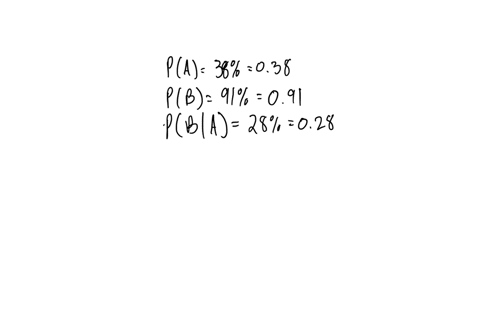 P(A) = 38% = 0.38
P(B) = 91% = 0.91
P(B|A) = 28% = 0.28